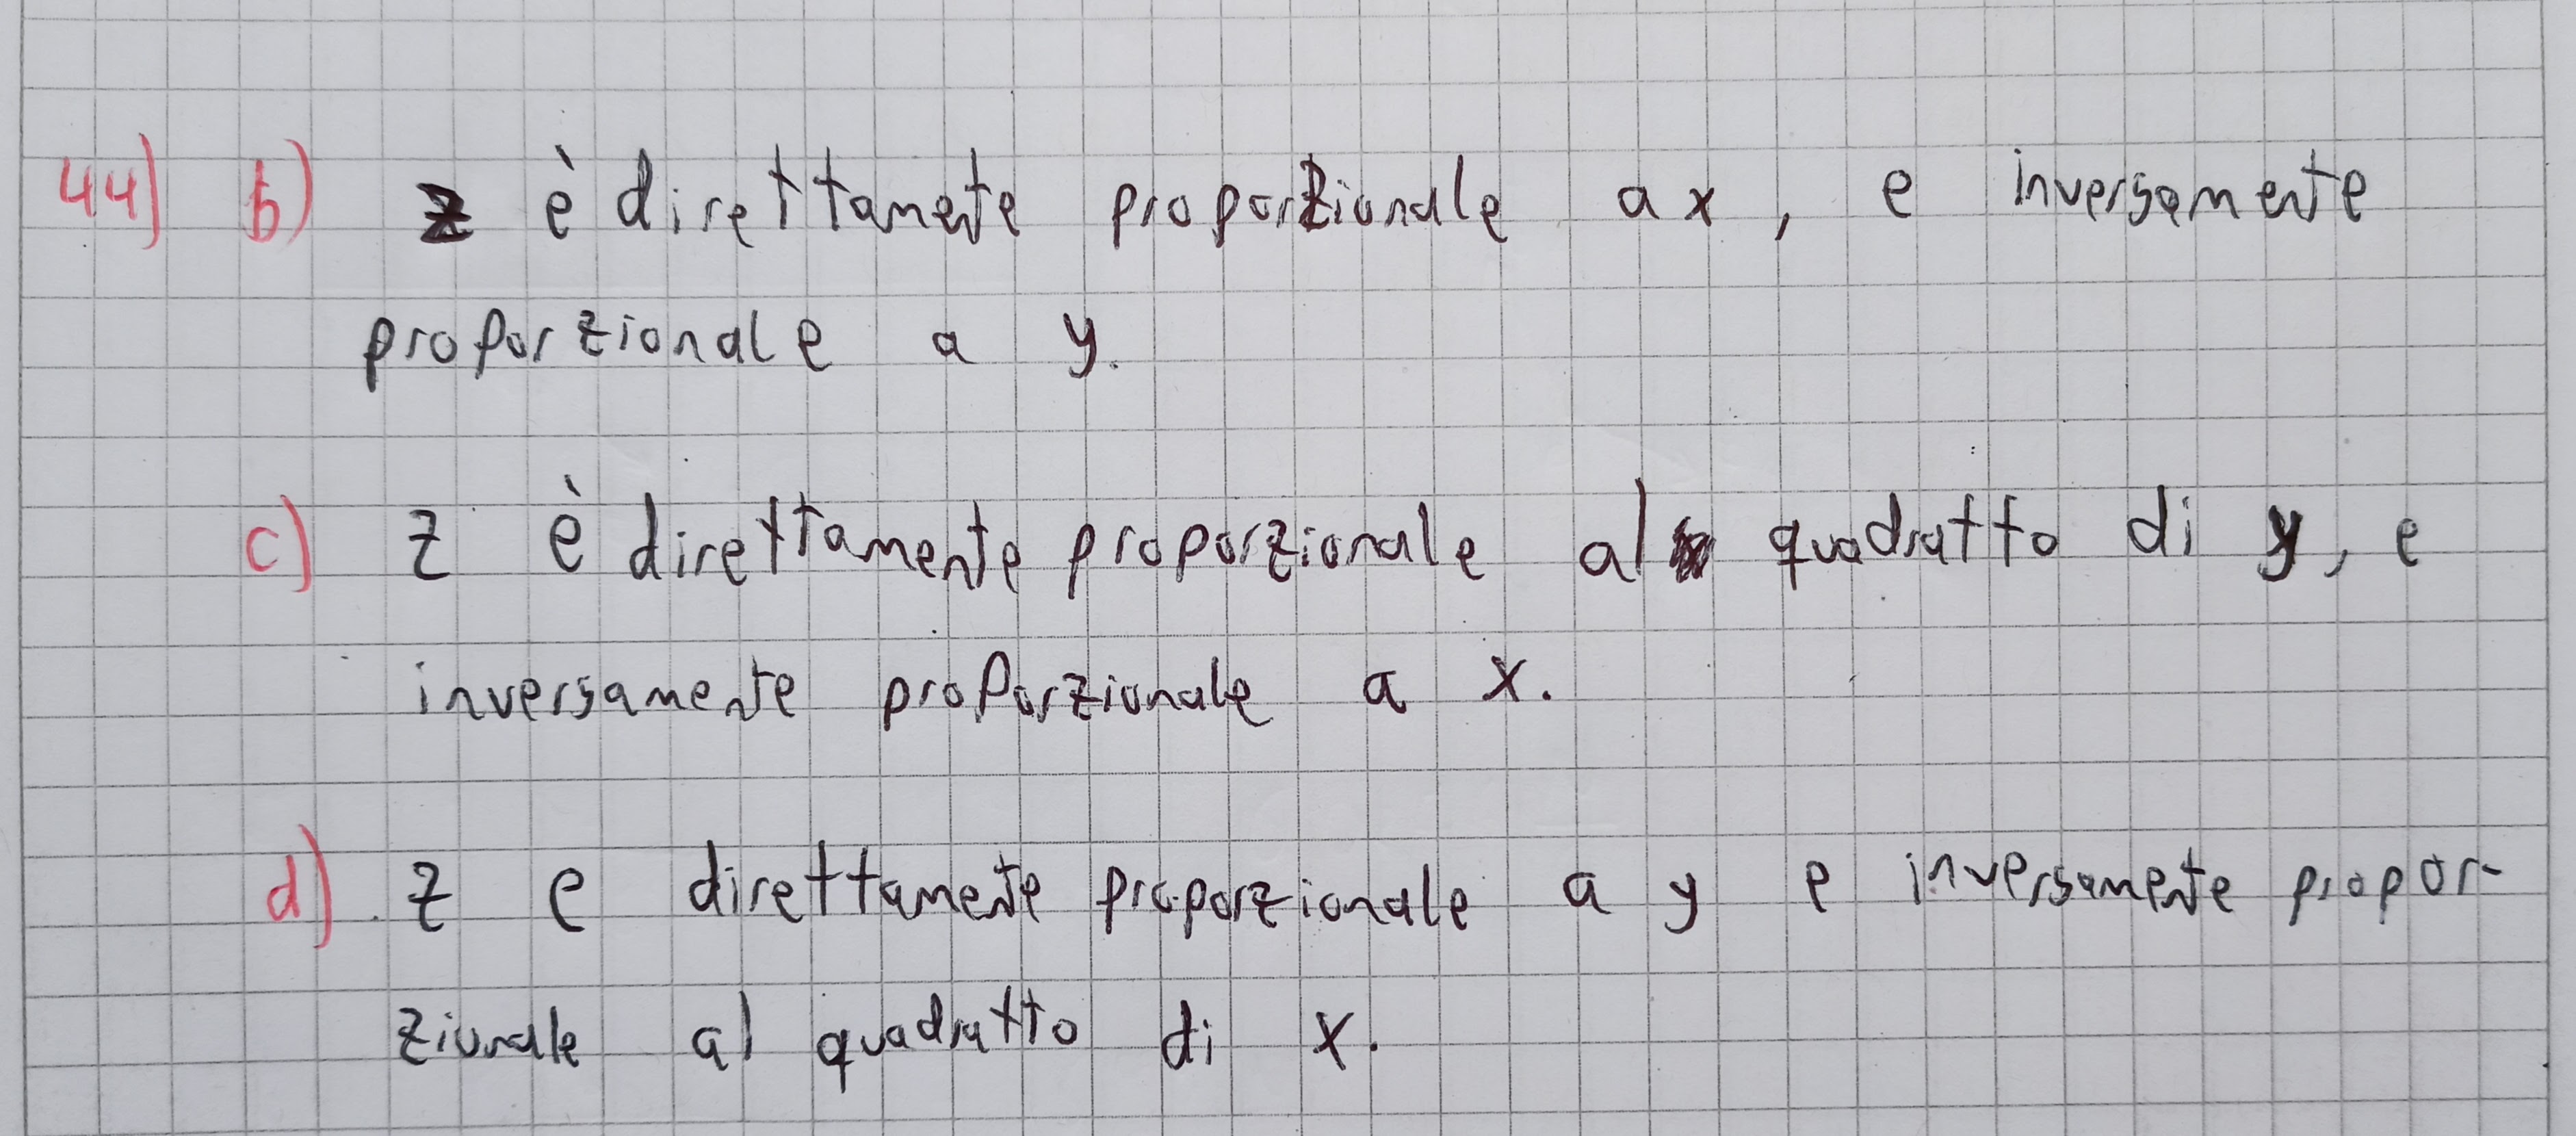 44) b) z è direttamente proporzionale a x, e inversamente
proporzionale a y.
c) z è direttamente proporzionale al quadratto di y, e
inversamente proporzionale a x.
d) z e direttamente proporzionale a y e inversamente propor-
zionale al quadratto di x.